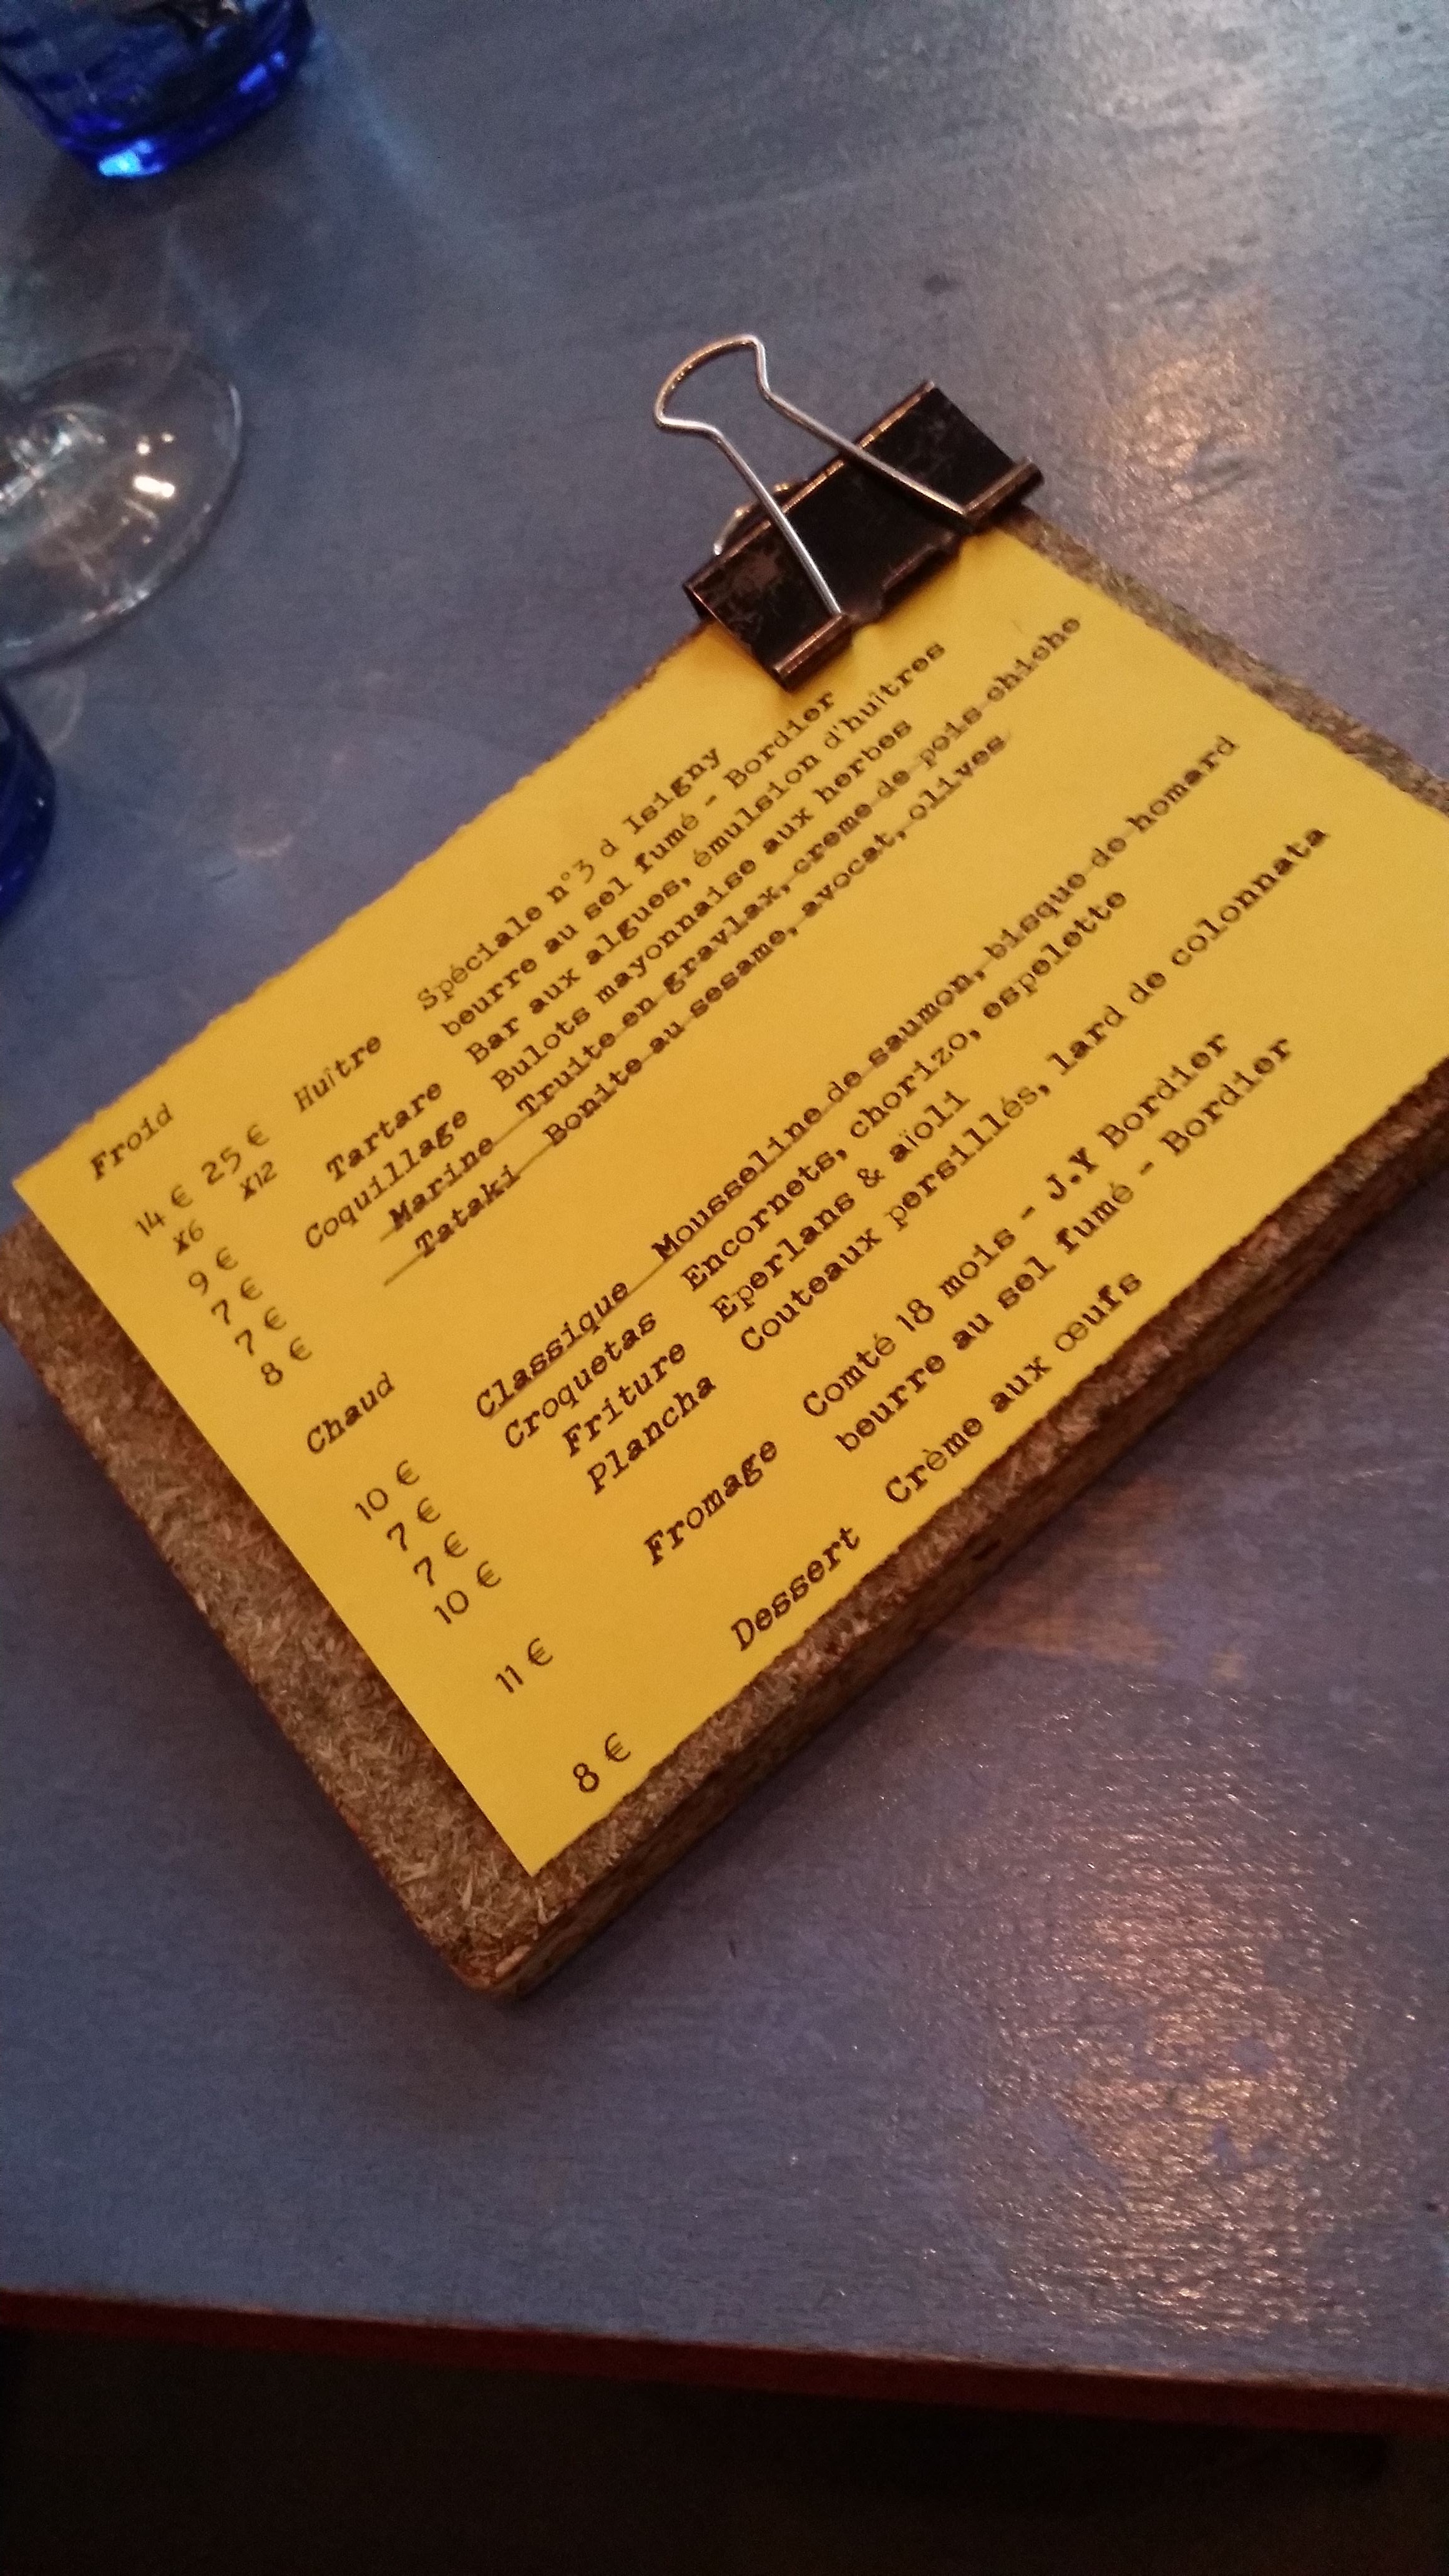 Froid
14 € 25 € Huître Spéciale n°3 d Isigny
x6 x12 beurre au sel fumé - Bordier
9 € Tartare Bar aux algues, émulsion d'huîtres
7 € Coquillage Bulots mayonnaise aux herbes
7 € Marine Truite en gravlax, creme de pois chiche
8 € Tataki Bonite au sesame, avocat, olives
Chaud
10 € Classique Mousseline de saumon, bisque de homard
7 € Croquetas Encornets, chorizo, espelette
7 € Friture Eperlans & aïoli
10 € Plancha Couteaux persillés, lard de colonnata
11 € Fromage Comté 18 mois - J.Y Bordier
beurre au sel fumé - Bordier
8 € Dessert Crème aux œufs